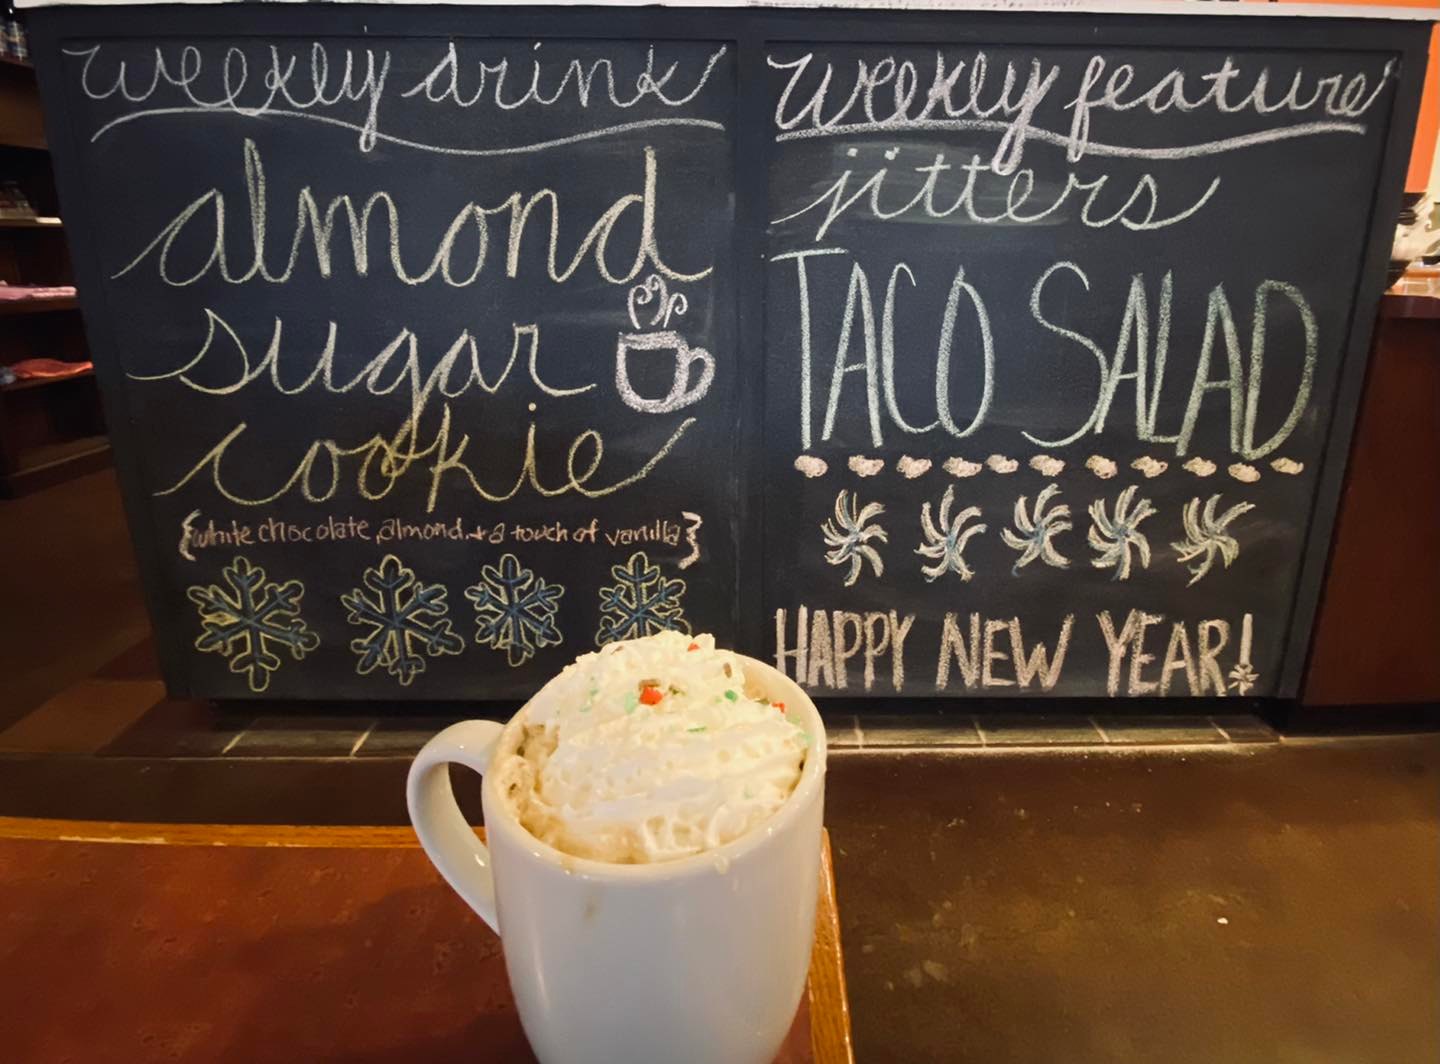 weekly drink
almond
sugar
cookie
{white chocolate, almond, + a touch of vanilla}
weekly feature
jitters
TACO SALAD
HAPPY NEW YEAR!